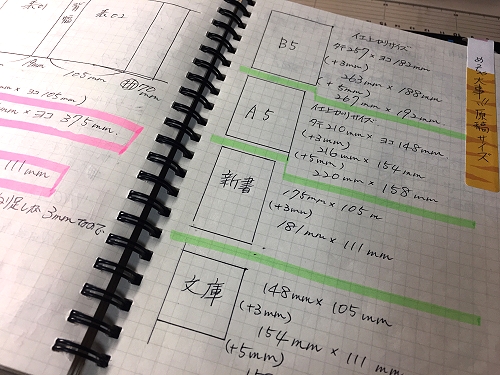 表01
表02
105mm
70
mm
mm × ヨコ 105)
mm × ヨコ 375mm.
111mm
足した3mm
B5
仕上がりサイズ
タテ257 × ヨコ182mm
(+3mm)
263mm × 188mm
(+5mm)
267mm × 192mm
A5
仕上がりサイズ
タテ210mm × ヨコ148mm
(+3mm)
216mm × 154mm
(+5mm)
220mm × 158mm
新書
175mm × 105m
(+3mm)
181mm × 111mm
文庫
148mm × 105mm
(+3mm)
154mm × 111mm
(+5mm)
大事
原稿サイズ